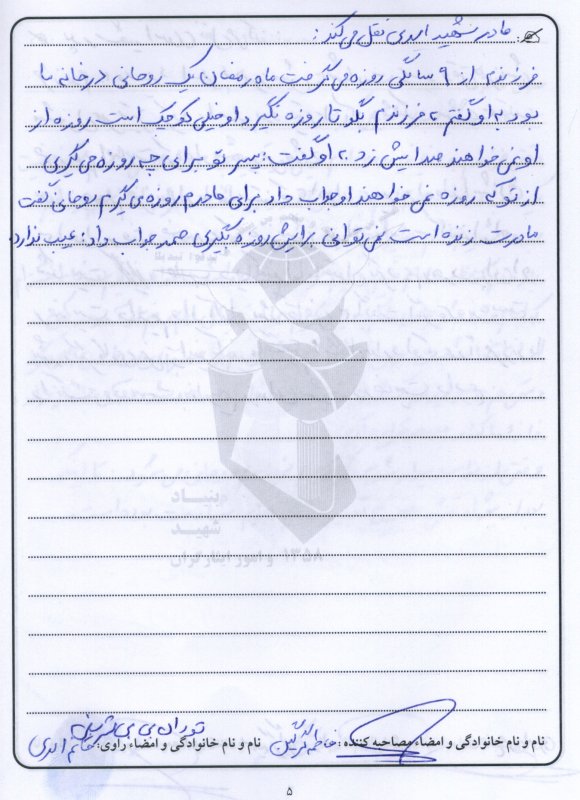 مادر شهید اسدی نقل می‌کند:
فرزندم از ۹ سالگی روزه می‌گرفت ماه رمضان یک روحانی در خانه ما
بود به او گفتم به فرزندم بگو تا روزه نگیرد او خیلی کوچک است روزه از
او نمی‌خواهند صدایش زد به او گفت: پسر تو برای چه روزه می‌گیری
از تو که روزه نمی‌خواهند او جواب داد برای مادرم روزه می‌گیرم روحانی گفت
مادرت زنده است نمی‌توانی برایش روزه بگیری صمد جواب داد: عیب ندارد.
بنیاد
شهید
و امور ایثارگران ۱۳۵۸
توران بی بی
نام و نام خانوادگی و امضاء مصاحبه کننده: فاطمه نام و نام خانوادگی و امضاء راوی:
۵